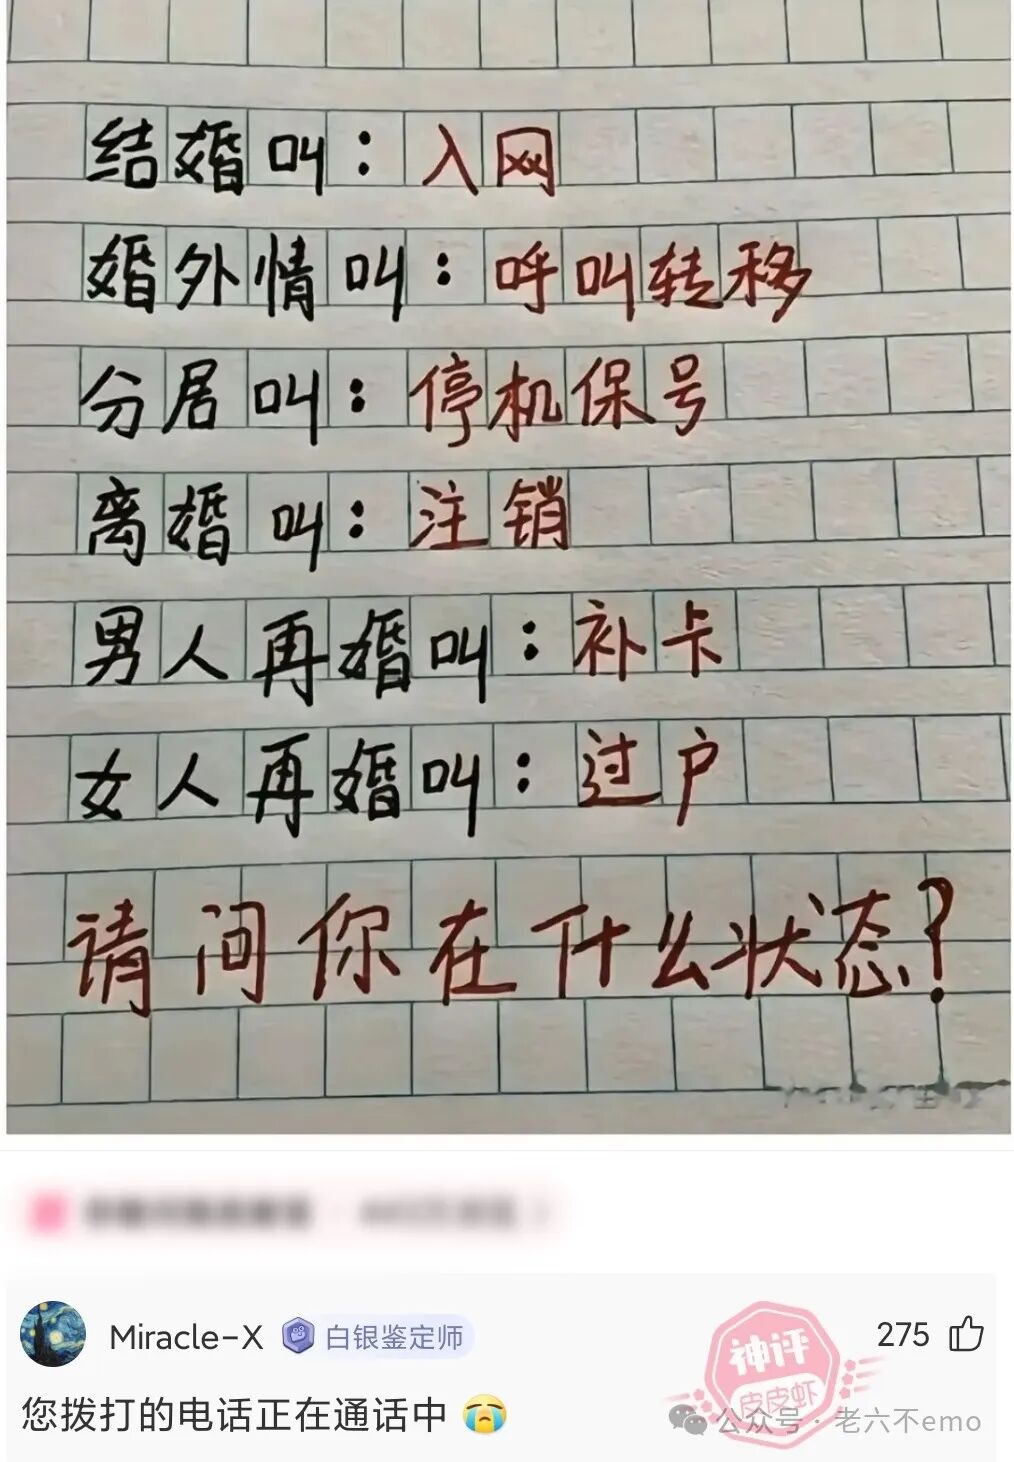 结婚叫：入网
婚外情叫：呼叫转移
分居叫：停机保号
离婚叫：注销
男人再婚叫：补卡
女人再婚叫：过户
请问你在什么状态？
Miracle-X 白银鉴定师
275
神评
皮皮虾
您拨打的电话正在通话中 😭
公众号·老六不emo